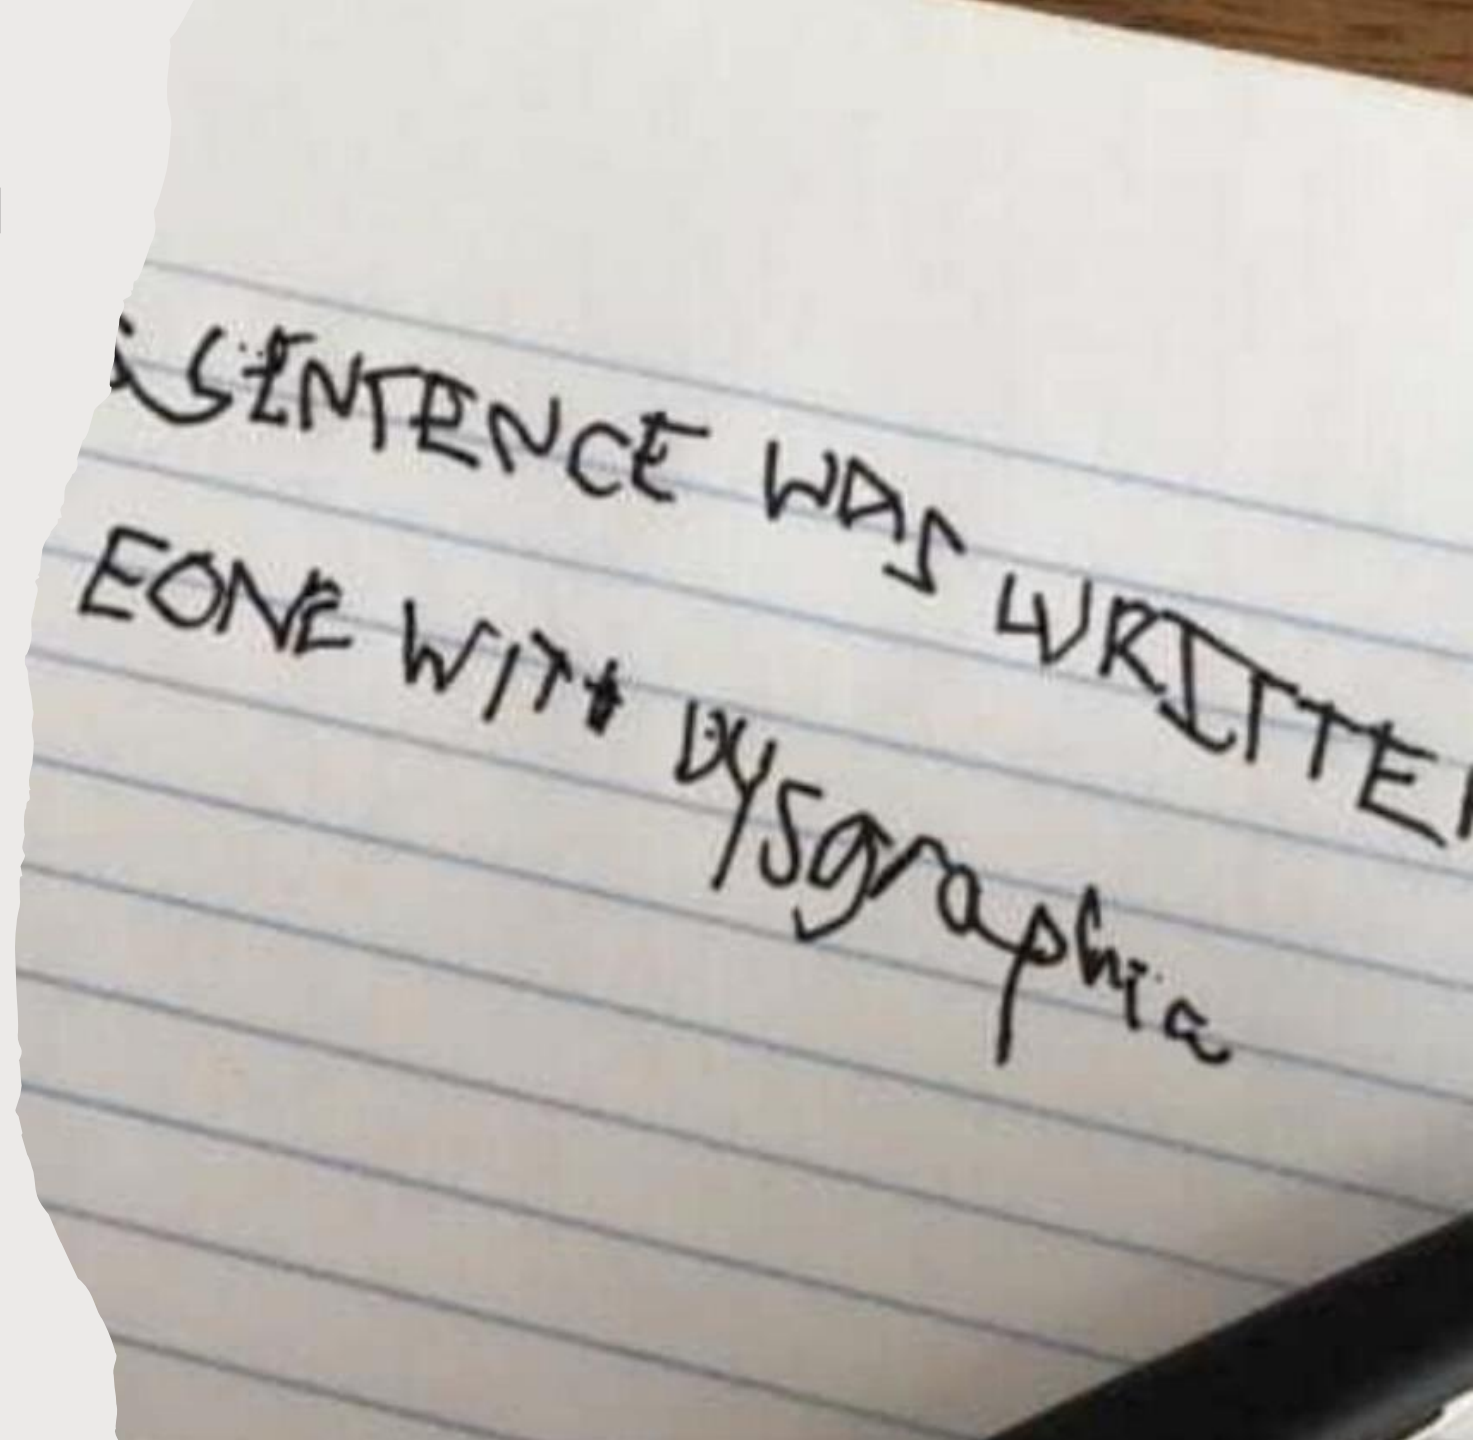 SENTENCE WAS WRITTEN
EONE WITH DYSgraphia